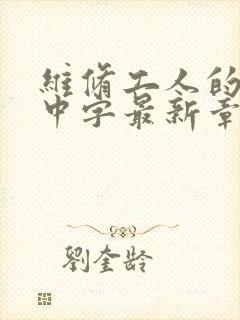 維脩工人的
中字最新章
劉奎龄